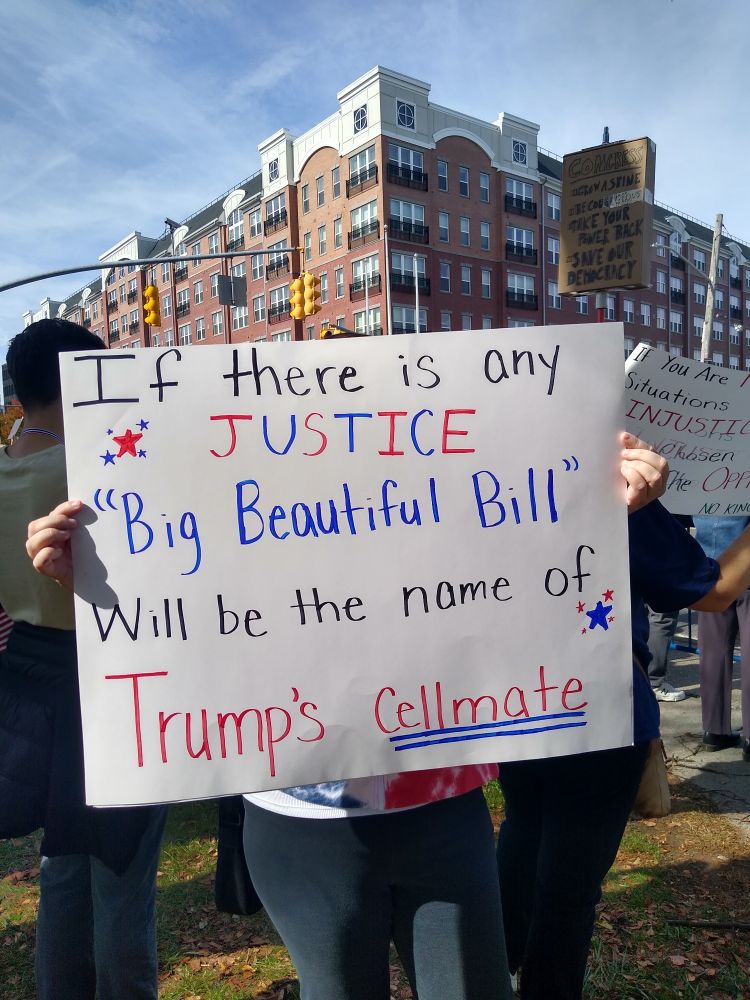 If there is any
JUSTICE
"Big Beautiful Bill"
Will be the name of
Trump's Cellmate
CONGRESS
GROW A SPINE
TAKE YOUR
POWER BACK
SAVE OUR
DEMOCRACY
If You Are
Situations
INJUSTIC
the OPP
NO KIN